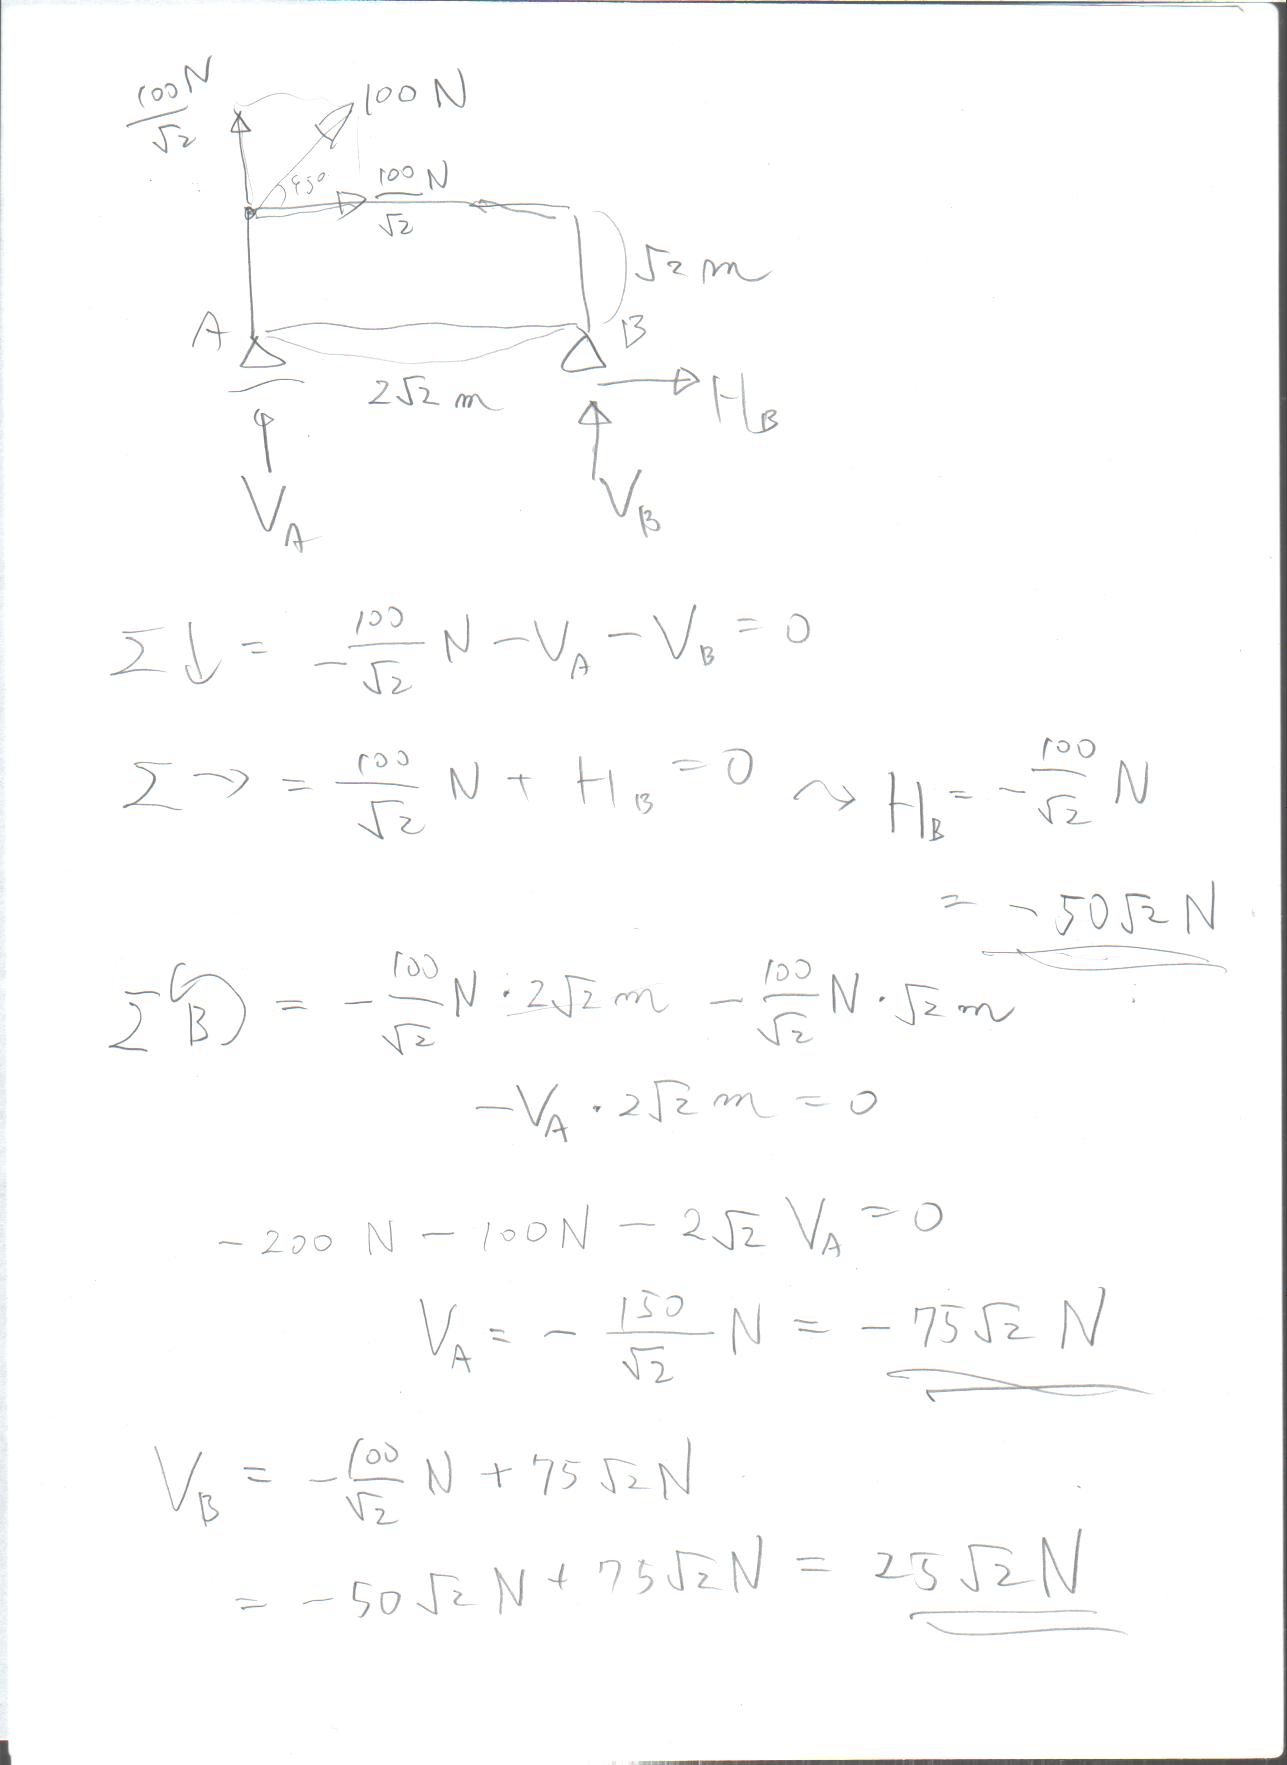 100/√2 N
100 N
45°
100/√2 N
√2 m
A
B
2√2 m
H_B
V_A
V_B
Σ↓ = -100/√2 N - V_A - V_B = 0
Σ→ = 100/√2 N + H_B = 0 ⇝ H_B = -100/√2 N
= -50√2 N
Σ↶B = -100/√2 N · 2√2 m - 100/√2 N · √2 m
- V_A · 2√2 m = 0
-200 N - 100 N - 2√2 V_A = 0
V_A = - 150/√2 N = -75√2 N
V_B = -100/√2 N + 75√2 N
= -50√2 N + 75√2 N = 25√2 N